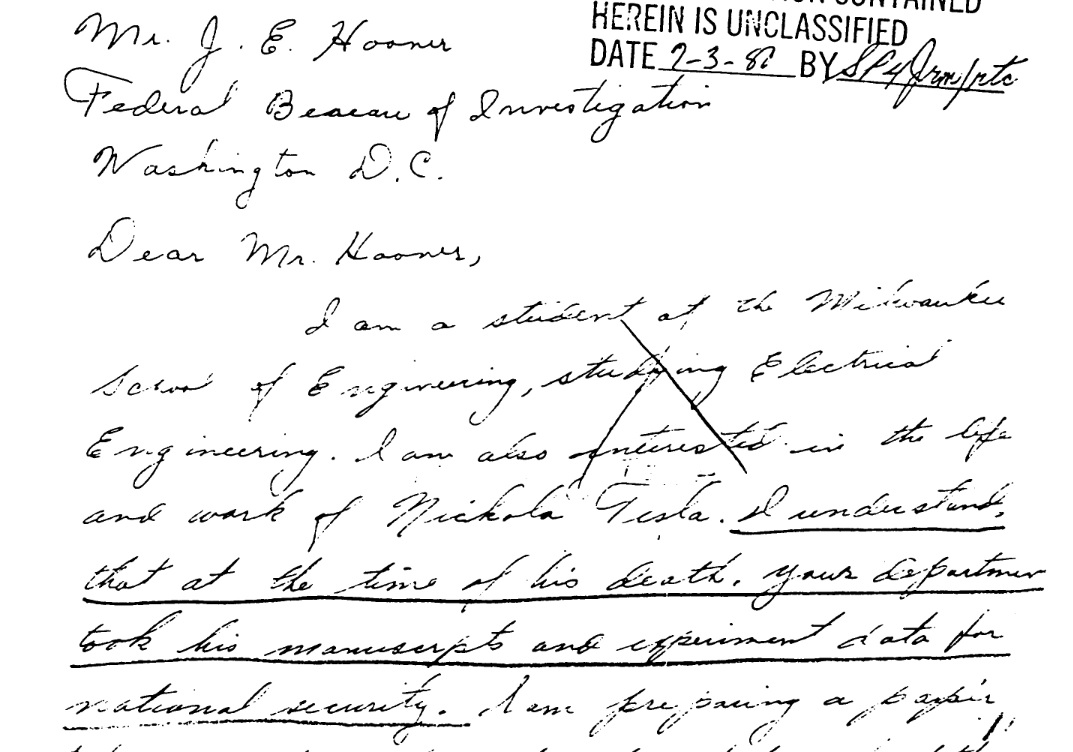 CONTAINED
HEREIN IS UNCLASSIFIED
DATE 7-3-80 BY SP4
Mr. J. E. Hoover
Federal Beaeau of Investigation
Washington D.C.
Dear Mr. Hoover,
I am a student at the Milwaukee
School of Engineering, studying Electrical
Engineering. I am also interested in the life
and work of Nickola Tesla. I understand,
that at the time of his death, your departmen
took his manuscripts and experiment data for
national security. I am preparing a paper